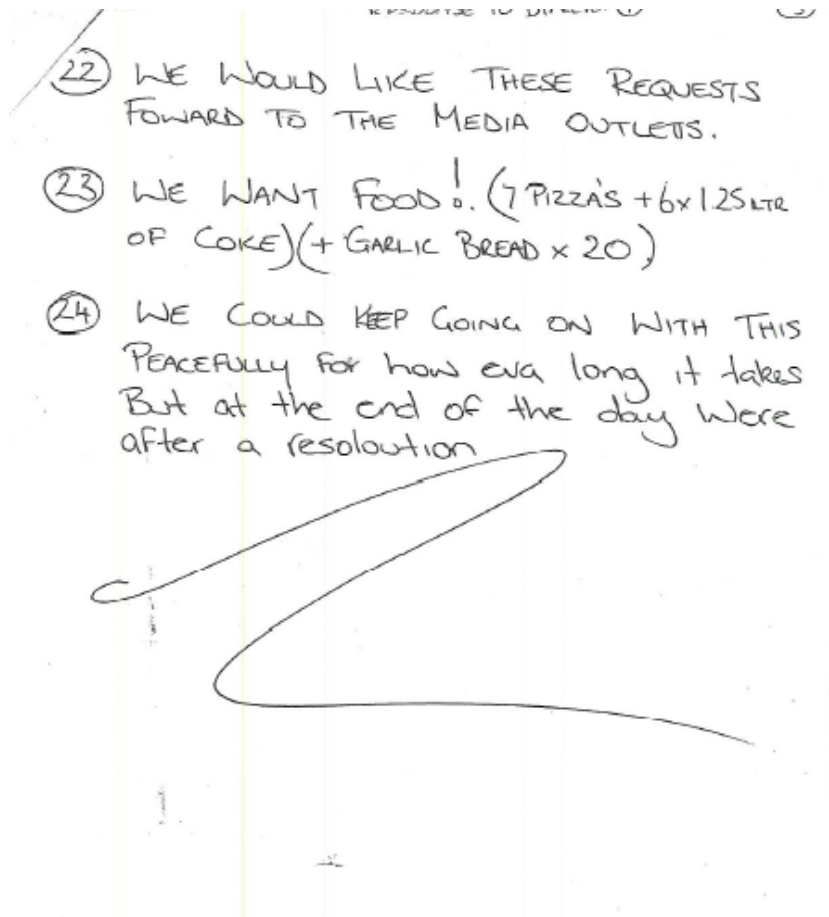 (22) WE WOULD LIKE THESE REQUESTS
FOWARD TO THE MEDIA OUTLETS.
(23) WE WANT FOOD!. (7 PIZZA'S + 6 x 1.25 LTR
OF COKE) (+ GARLIC BREAD x 20)
(24) WE COULD KEEP GOING ON WITH THIS
PEACEFULLY FOR how eva long it takes
But at the end of the day Were
after a resoloution